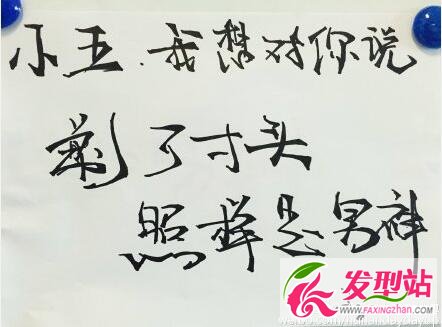 小五.我想对你说
剃了寸头
照样是男神
发型站
WWW.FAXINGZHAN.COM